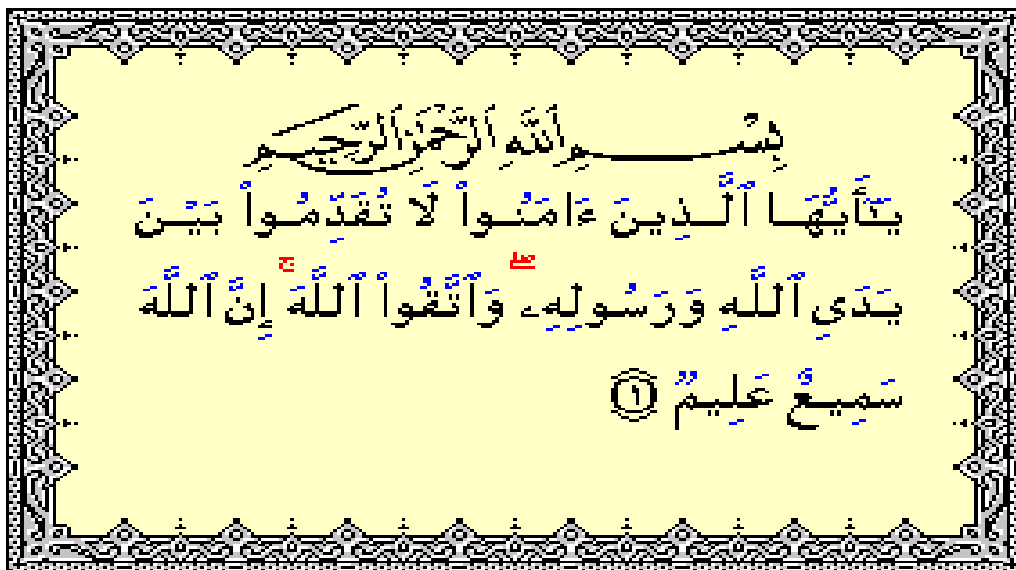 بِسْمِ اللَّهِ الرَّحْمَٰنِ الرَّحِيمِ
يَـٰٓأَيُّهَا ٱلَّذِينَ ءَامَنُوا۟ لَا تُقَدِّمُوا۟ بَيْنَ
يَدَىِ ٱللَّهِ وَرَسُولِهِۦ ۖ وَٱتَّقُوا۟ ٱللَّهَ ۚ إِنَّ ٱللَّهَ
سَمِيعٌ عَلِيمٌ ١